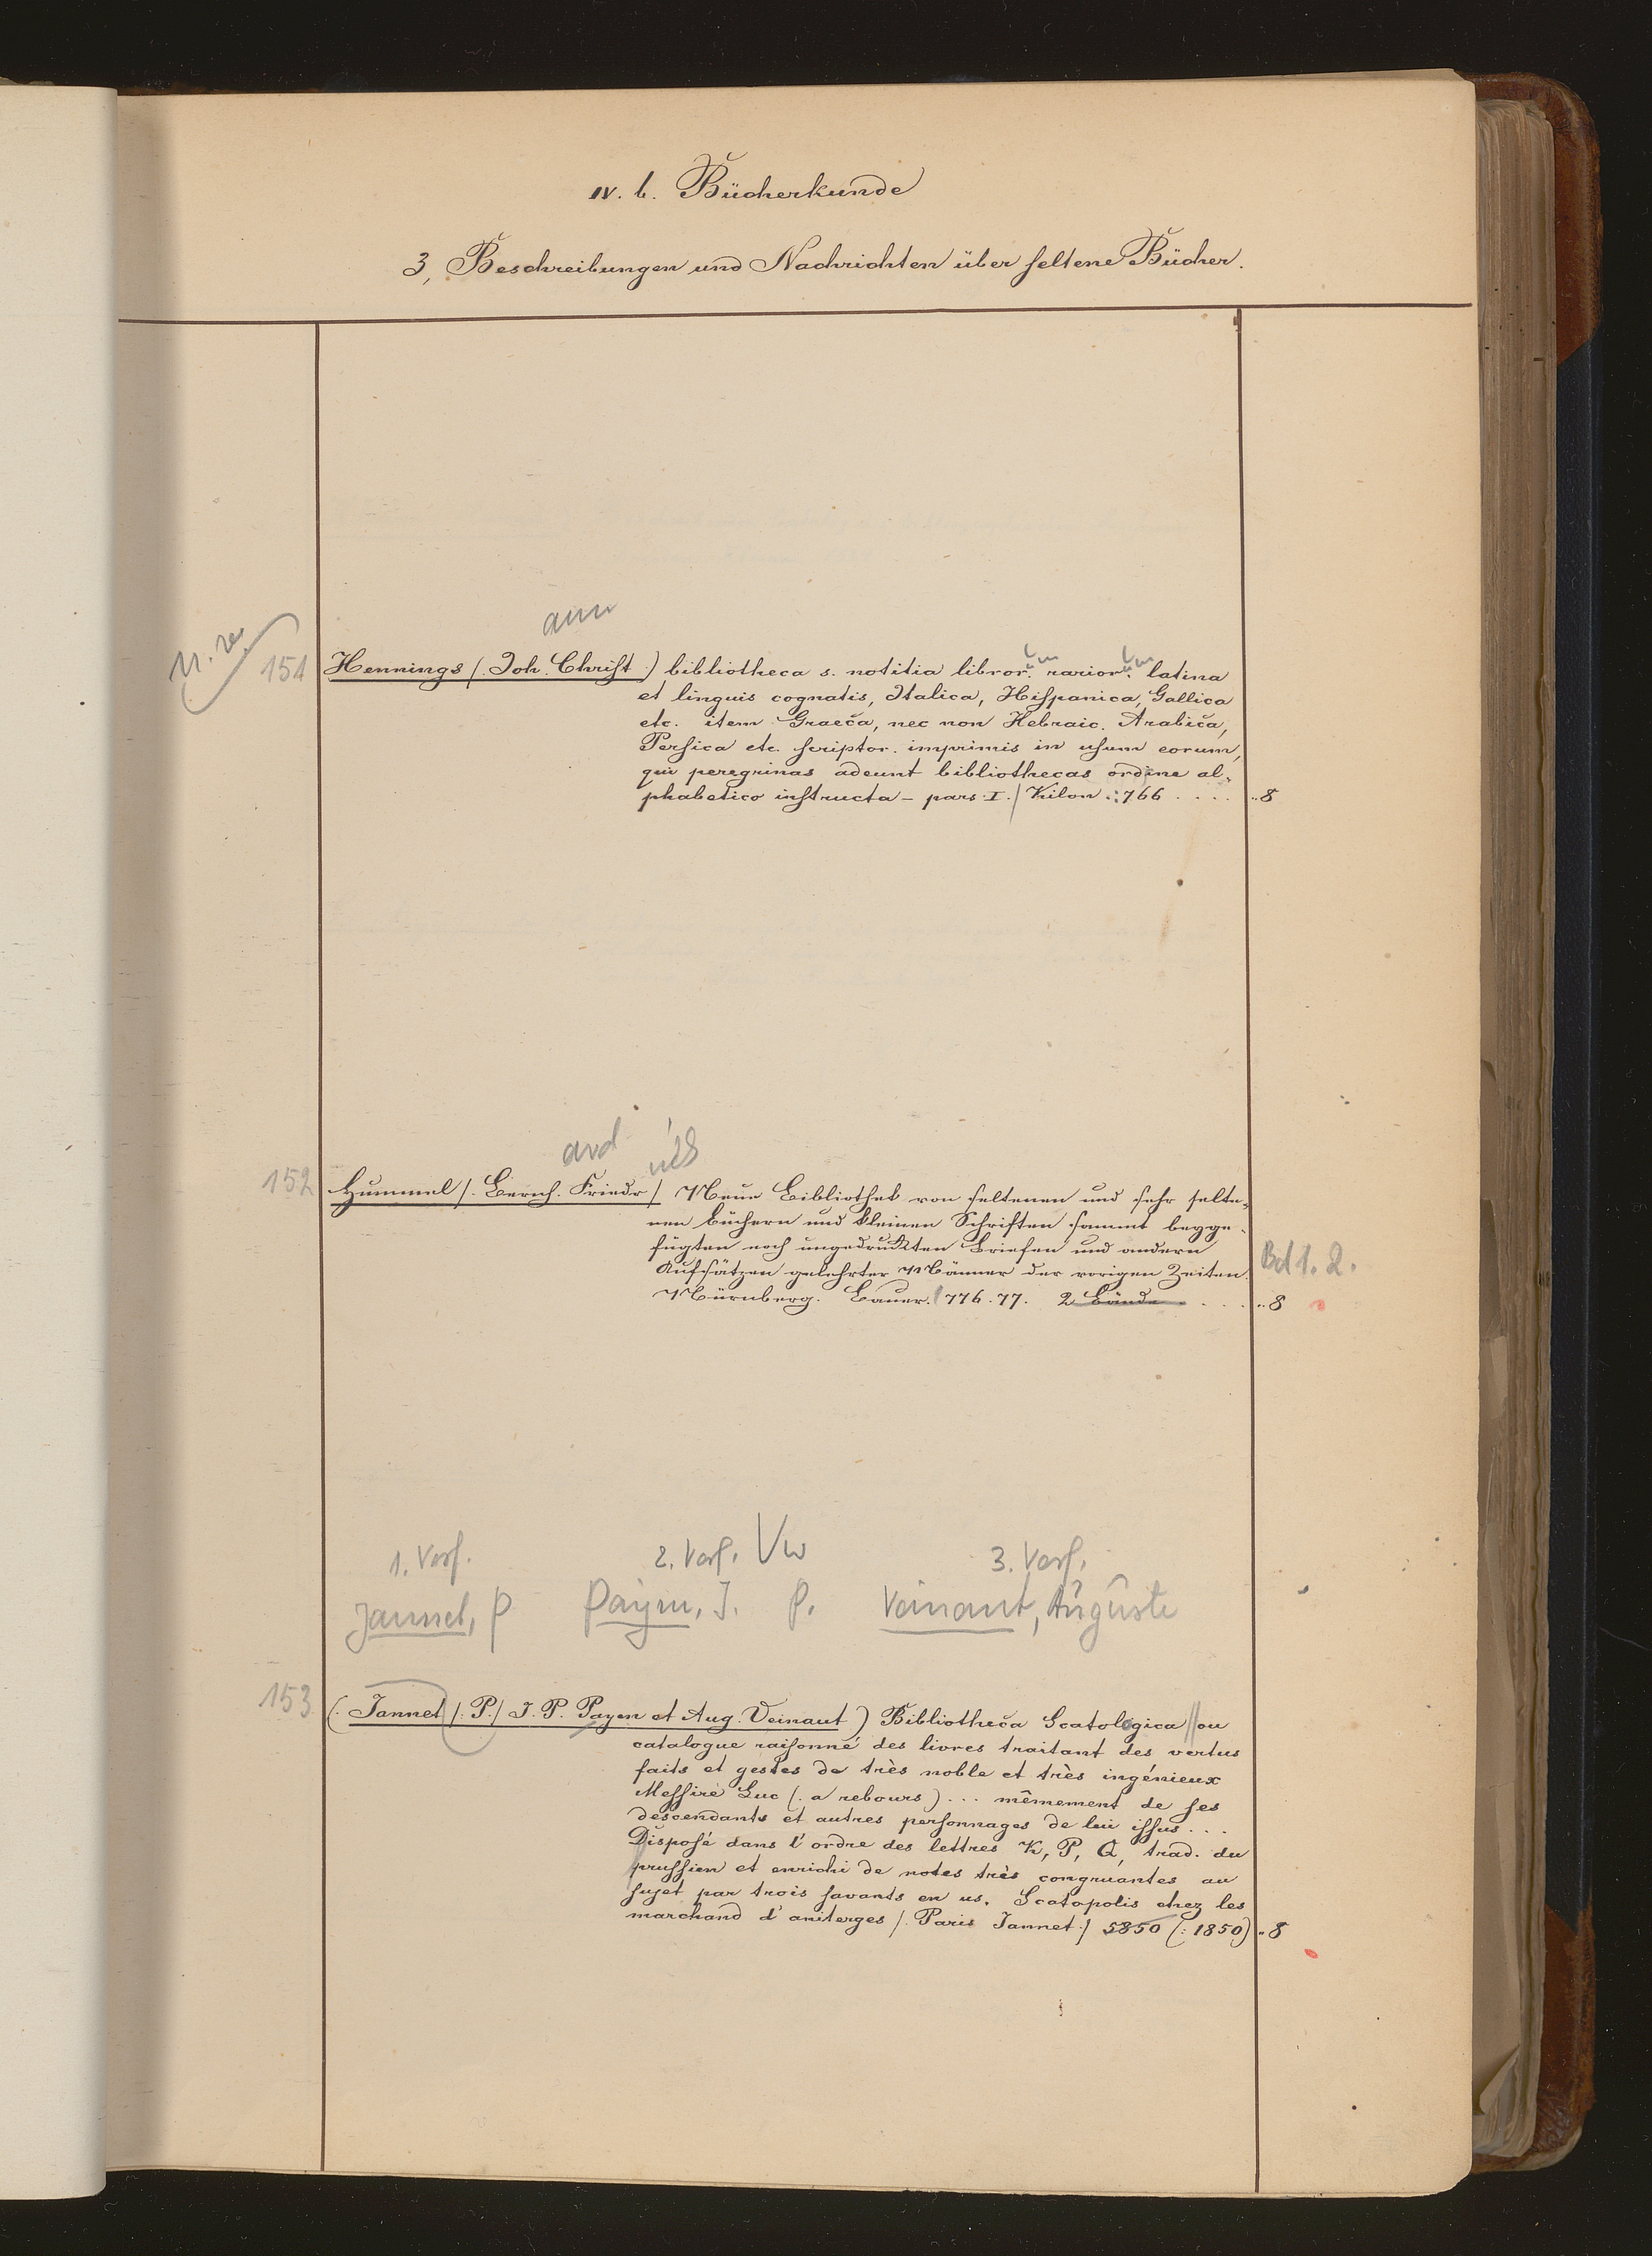 IV. b. Bücherkunde
3, Beschreibungen und Nachrichten über seltene Bücher.
ann
151 Hennings (. Joh. Christ.) bibliotheca s. notitia libror. rarior. latina
um um
et linguis cognatis, Italica, Hispanica, Gallica
etc. item Graeca, nec non Hebraic. Arabica,
Persica etc. scriptor. imprimis in usum eorum,
qui peregrinas adeunt bibliothecas ordine al-
phabetico instructa – pars I. / Kilon .: 766 . . . . „8
ard ich
152 Hummel /. Bernh. Friedr / Neue Bibliothek von seltenen und sehr selte-
nen Büchern und kleinen Schriften sammt beyge-
fügten noch ungedruckten Briefen und andern
Aufsätzen gelehrter Männer der vorigen Zeiten.
Bd 1. 2.
Nürnberg. Bauer. 776. 77. 2 Bände . . . . „8
1. Verf. 2. Verf. Vw 3. Verf.
Jannet, P Payen, J. P. Veinant, Auguste
153 (. Jannet /: P./ J. P. Payen et Aug. Veinaut ) Bibliotheca Scatologica || ou
catalogue raisonné des livres traitant des vertus
faits et gestes de très noble et très ingénieux
Messire Luc (. a rebours) ... mêmement de ses
descendants et autres personnages de lui issus ...
Disposé dans l'ordre des lettres K, P, Q, trad. du
prussien et enrichi de notes très congruantes au
sujet par trois savants en us. Scatopolis chez les
marchand d'aniterges /. Paris Jannet ./ 5850 (: 1850) „8